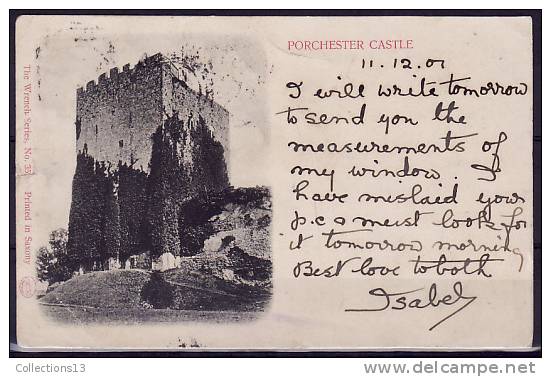 PORCHESTER CASTLE
11.12.01
I will write tomorrow
to send you the
measurements of
my window. I
have mislaid your
p.c & must look for
it tomorrow morning
Best love to both
Isabel
The Wrench Series, No. 33 Printed in Saxony
Collections13
www.delcampe.net